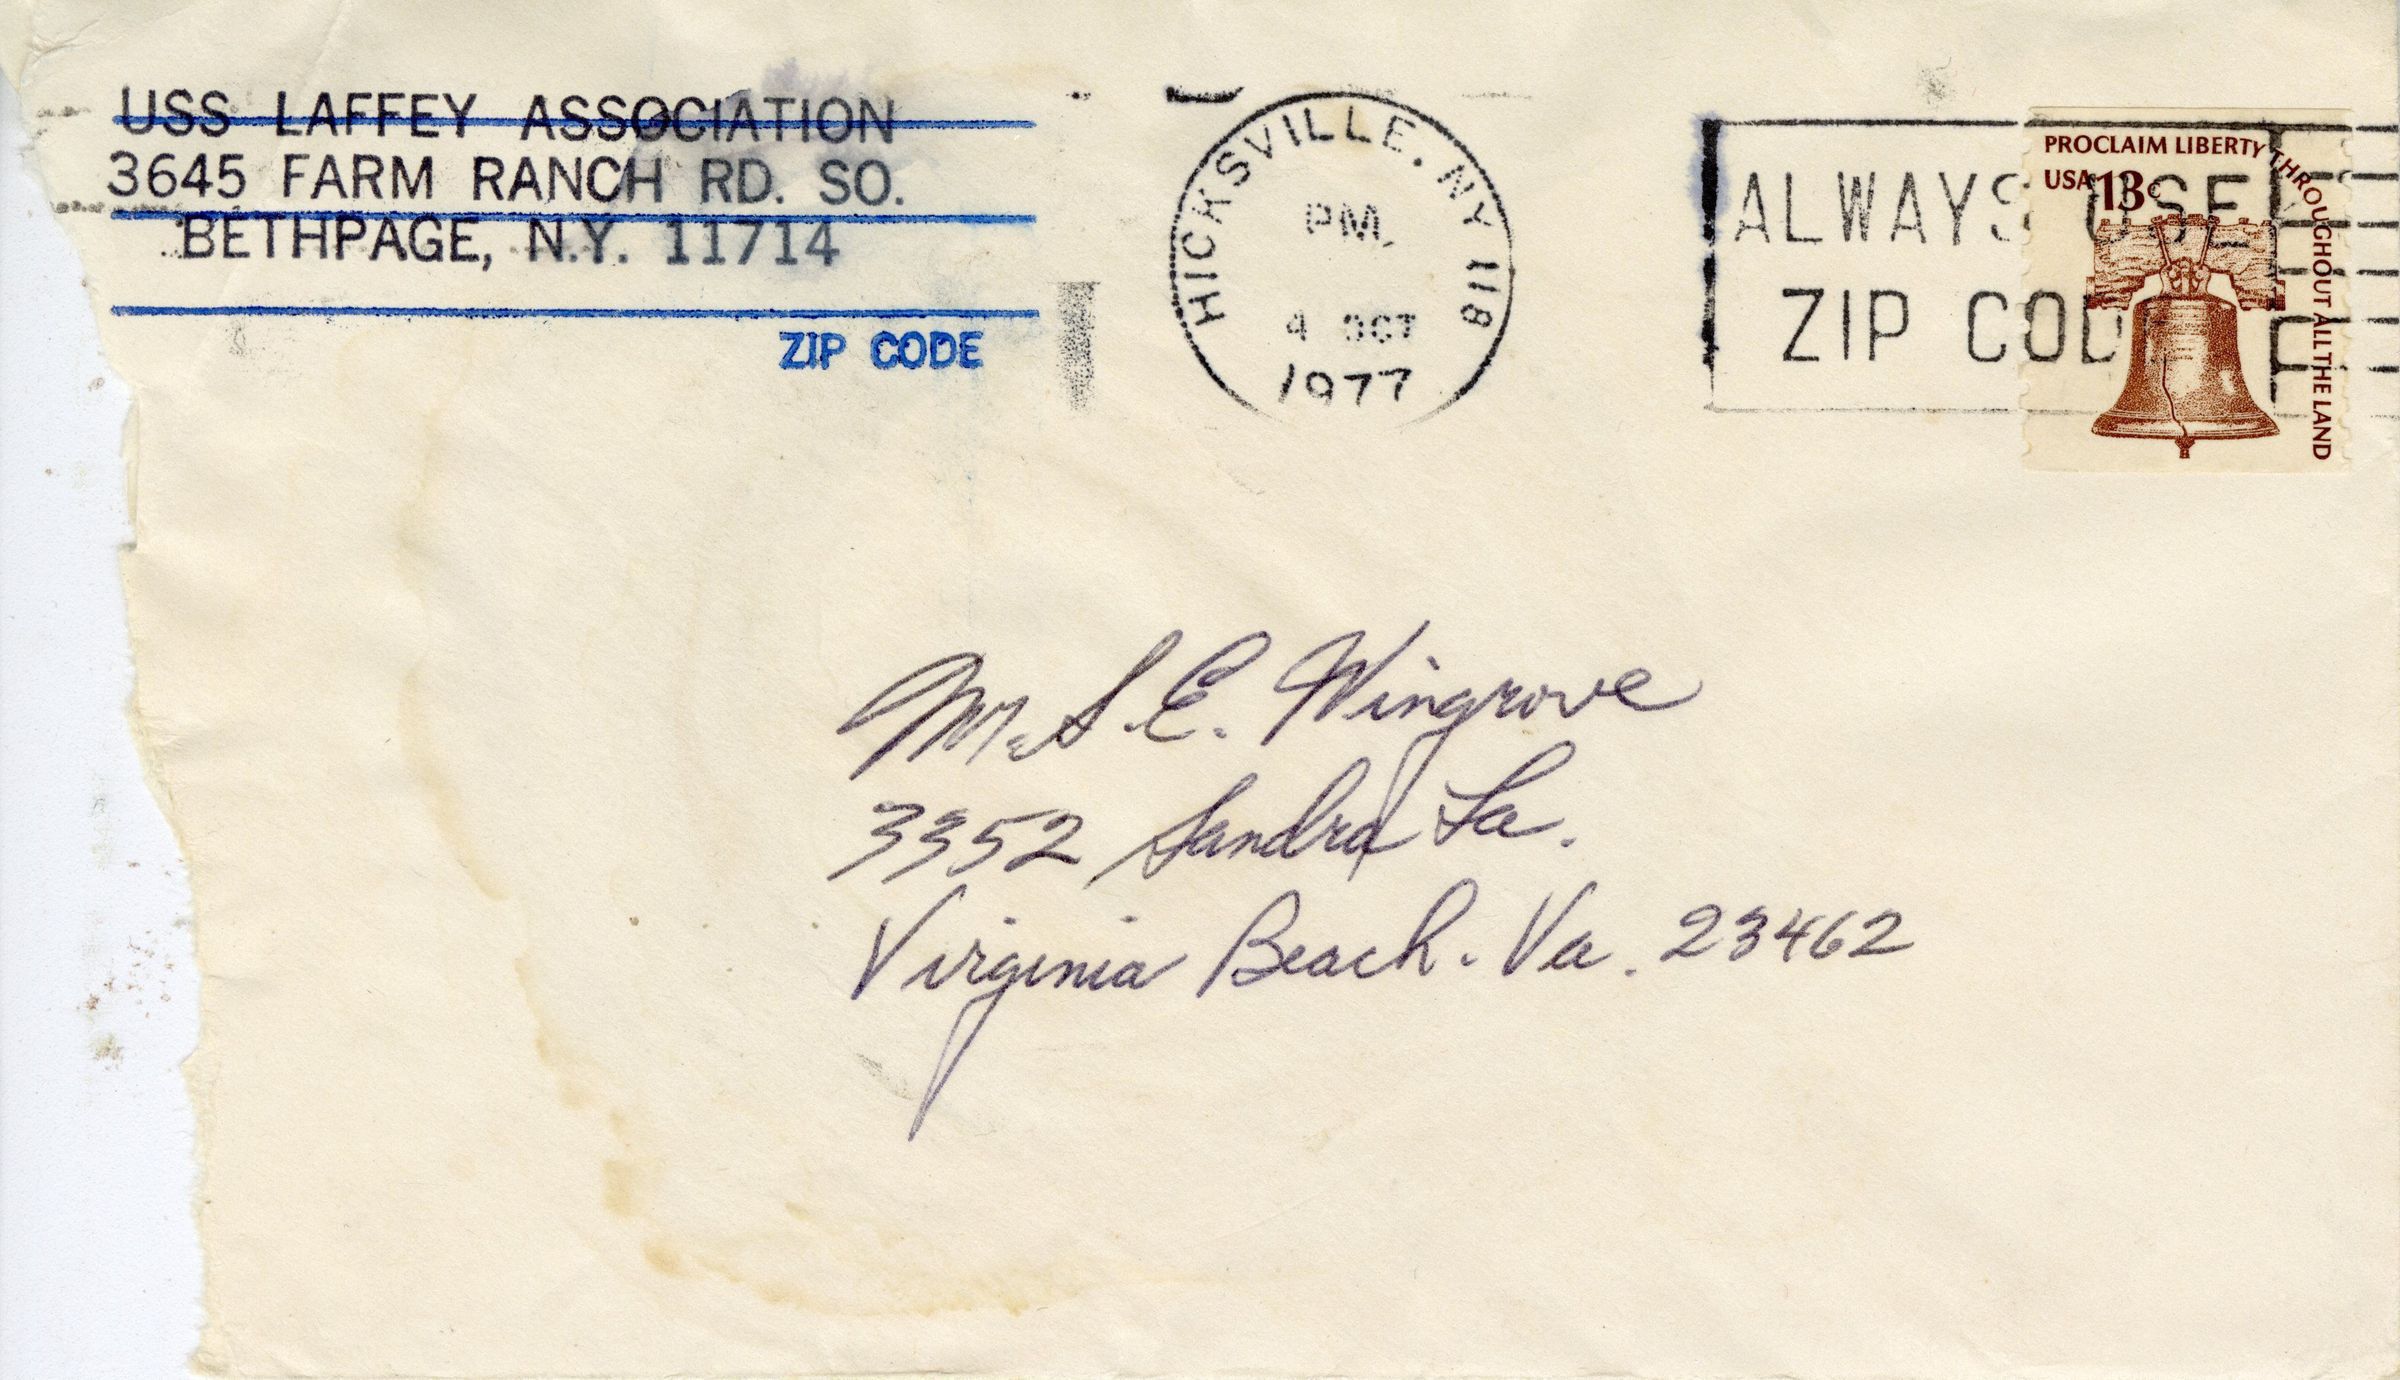 USS LAFFEY ASSOCIATION
3645 FARM RANCH RD. SO.
BETHPAGE, N.Y. 11714
ZIP CODE
HICKSVILLE, NY 118
PM
4 OCT
1977
ALWAYS USE
ZIP CODE
PROCLAIM LIBERTY THROUGHOUT ALL THE LAND
USA 13c
Mr. S. E. Wingrove
3352 Sandra La.
Virginia Beach. Va. 23462